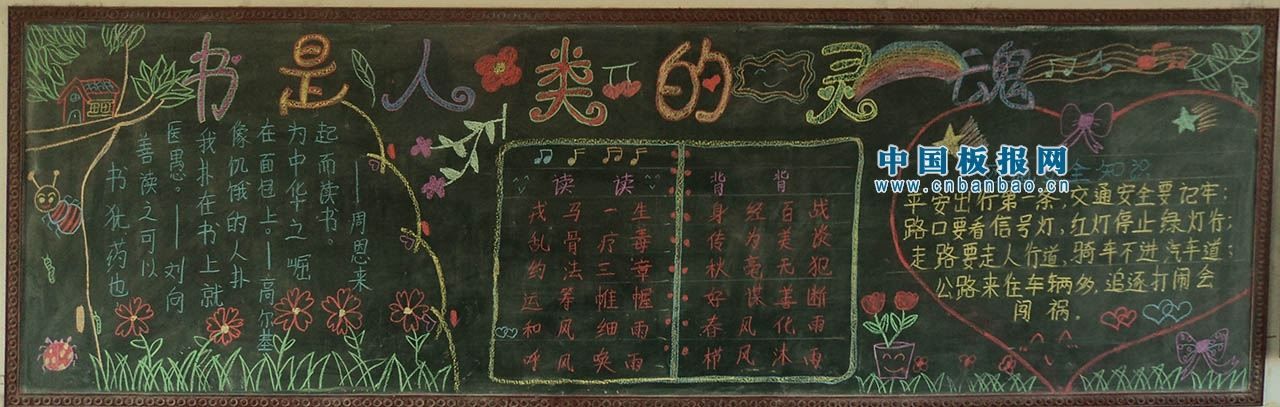 书是人类的灵魂
书犹药也
善读之可以
医愚。——刘向
我扑在书上就
像饥饿的人扑
在面包上。——高尔基
为中华之崛
起而读书。
——周恩来
读 读
戎马一生
乱骨疗毒
约法三章
运筹帷幄
和风细雨
呼风唤雨
背 背
身经百战
传为美谈
秋毫无犯
好谋善断
春风化雨
栉风沐雨
中国板报网
www.cnbanbao.cn
全知识
平安出行第一条,交通安全要记牢;
路口要看信号灯,红灯停止绿灯行;
走路要走人行道,骑车不进汽车道;
公路来往车辆多,追逐打闹会
闯祸。